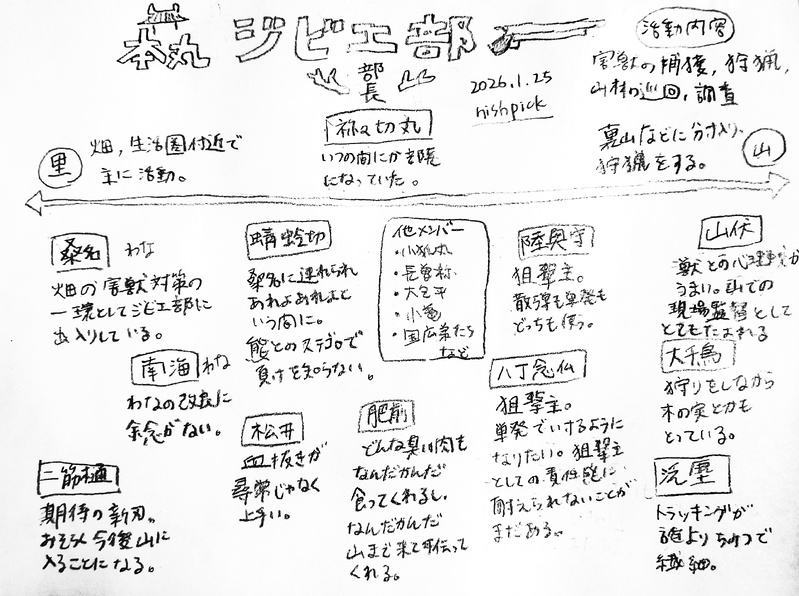 本丸 ジビエ部
部長
2026.1.25
nishpick
活動内容
害獣の捕獲, 狩猟,
山林の巡回, 調査
祢々切丸
いつの間にか部長
になっていた。
里
畑, 生活圏付近で
主に活動。
裏山などに分け入り,
狩猟をする。
山
桑名 わな
畑の害獣対策の
一環としてジビエ部に
出入りしている。
南海 わな
わなの改良に
余念がない。
二筋樋
期待の新刃。
おそらく今後山に
入ることになる。
蜻蛉切
桑名に連れられ
あれよあれよと
いう間に。
熊とのステゴロで
負けを知らない。
松井
血抜きが
尋常じゃなく
上手い。
他メンバー
・小狐丸
・長曽祢
・大包平
・小竜
・国広弟たち
など
肥前
どんな臭い肉も
なんだかんだ
食ってくれるし、
なんだかんだ
山まで来て手伝って
くれる。
陸奥守
狙撃主。
散弾も単発も
どっちも使う。
八丁念仏
狙撃主。
単発でいけるように
なりたい。狙撃主
としての責任感に
耐えられないことが
まだある。
山伏
獣との心理戦が
うまい。山での
現場監督として
とてもたよれる
大千鳥
狩りをしながら
木の実とかも
とっている。
泛塵
トラッキングが
誰よりちみつで
繊細。